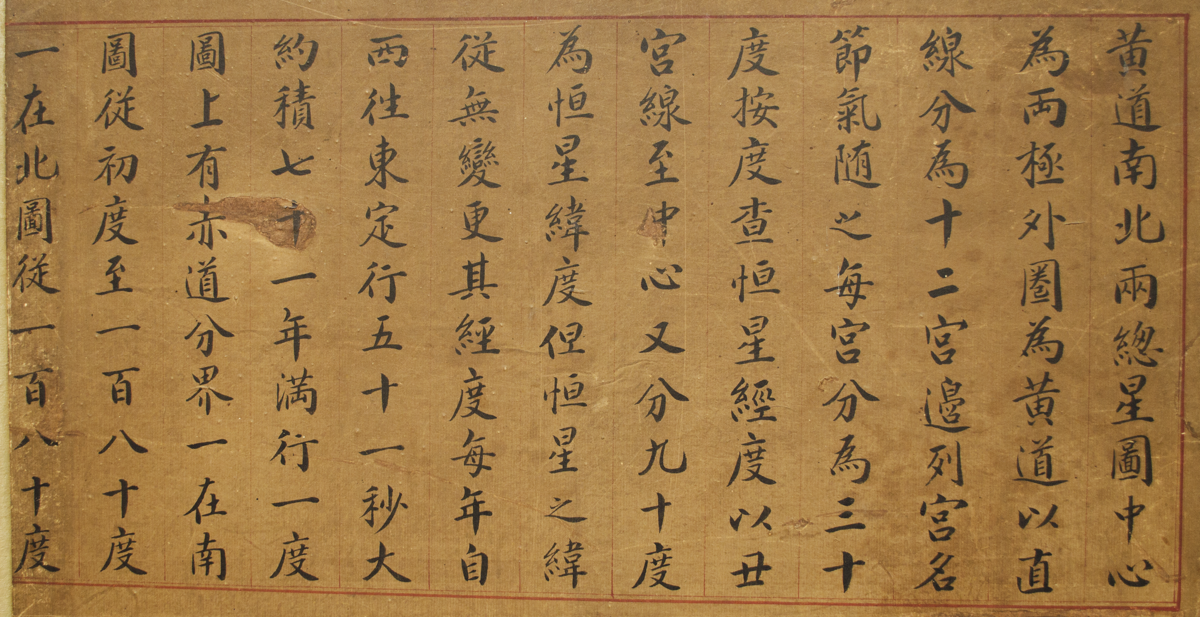 黄道南北兩總星圖中心
為両極外圈為黄道以直
線分為十二宮邉列宮名
節氣随之每宮分為三十
度按度查恒星經度以丑
宮線至中心又分九十度
為恒星緯度但恒星之緯
従無變更其經度每年自
西徃東定行五十一秒大
約積七十一年満行一度
圖上有赤道分界一在南
圖従初度至一百八十度
一在北圖従一百八十度